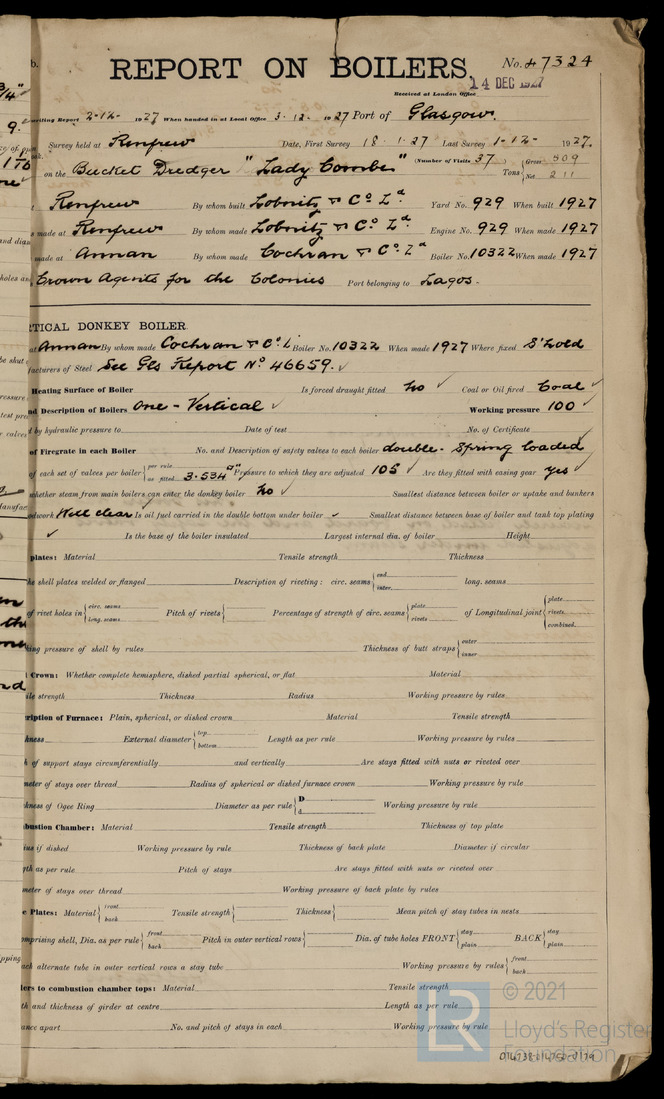 REPORT ON BOILERS.
No. 47324
Received at London Office 14 DEC 1927
writing Report 2-12- 1927 When handed in at Local Office 3.12.1927 Port of Glasgow.
Survey held at Renfrew Date, First Survey 18.1.27 Last Survey 1-12- 1927.
on the Bucket Dredger "Lady Combe" (Number of Visits 37) Tons {Gross 509
Net 211
Renfrew By whom built Lobnitz & Co Ld Yard No. 929 When built 1927
made at Renfrew By whom made Lobnitz & Co. Ld. Engine No. 929 When made 1927
made at Annan By whom made Cochran & Co. Ld Boiler No. 10322 When made 1927
Crown Agents for the Colonies Port belonging to Lagos.
TICAL DONKEY BOILER.
at Annan By whom made Cochran & Co. L. Boiler No. 10322 When made 1927 Where fixed S'hold
facturers of Steel See Gls Report No 46659.
Heating Surface of Boiler Is forced draught fitted No Coal or Oil fired Coal
nd Description of Boilers One - Vertical Working pressure 100
d by hydraulic pressure to Date of test No. of Certificate
of Firegrate in each Boiler No. and Description of safety valves to each boiler double. Spring loaded
of each set of valves per boiler {per rule
as fitted 3.534 Pressure to which they are adjusted 105 Are they fitted with easing gear yes
whether steam from main boilers can enter the donkey boiler No Smallest distance between boiler or uptake and bunkers
odwork Well clear Is oil fuel carried in the double bottom under boiler Smallest distance between base of boiler and tank top plating
Is the base of the boiler insulated Largest internal dia. of boiler Height
plates: Material Tensile strength Thickness
he shell plates welded or flanged Description of riveting: circ. seams {end
inter. long. seams
of rivet holes in {circ. seams
long. seams Pitch of rivets { Percentage of strength of circ. seams {plate
rivets of Longitudinal joint {plate
rivets.
combined.
king pressure of shell by rules Thickness of butt straps {outer
inner
Crown: Whether complete hemisphere, dished partial spherical, or flat Material
ile strength Thickness Radius Working pressure by rules
ription of Furnace: Plain, spherical, or dished crown Material Tensile strength
kness External diameter {top
bottom Length as per rule Working pressure by rules
h of support stays circumferentially and vertically Are stays fitted with nuts or riveted over
meter of stays over thread Radius of spherical or dished furnace crown Working pressure by rule
kness of Ogee Ring Diameter as per rule {D
d Working pressure by rule
bustion Chamber: Material Tensile strength Thickness of top plate
ius if dished Working pressure by rule Thickness of back plate Diameter if circular
gth as per rule Pitch of stays Are stays fitted with nuts or riveted over
meter of stays over thread Working pressure of back plate by rules
e Plates: Material {front
back Tensile strength { Thickness { Mean pitch of stay tubes in nests
mprising shell, Dia. as per rule {front
back Pitch in outer vertical rows { Dia. of tube holes FRONT {stay
plain BACK {stay
plain
ach alternate tube in outer vertical rows a stay tube Working pressure by rules {front
back
ders to combustion chamber tops: Material Tensile strength
th and thickness of girder at centre Length as per rule
ance apart No. and pitch of stays in each Working pressure by rule
LR
© 2021
Lloyd's Register
Foundation